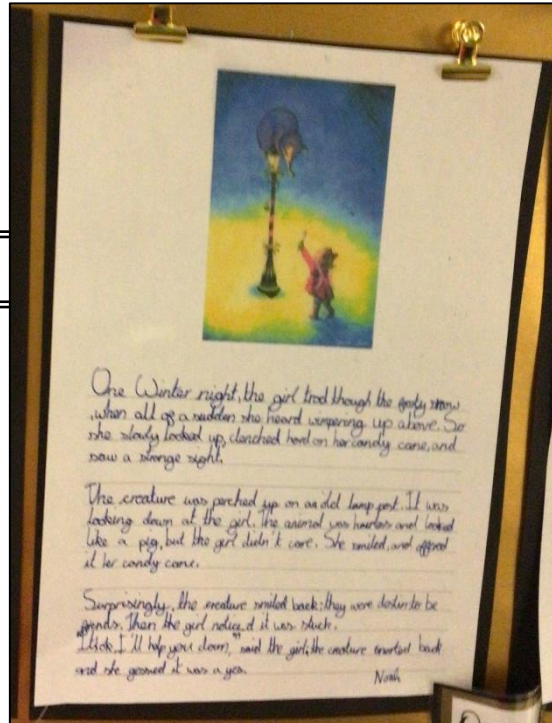 One Winter night, the girl trod though the snow
, when all of a sudden she heard wimpering up above. So
she slowly looked up, clenched hard on her candy cane, and
saw a strange sight.
The creature was perched up on an old lamp post. It was
looking down at the girl. The animal was hairless and looked
like a pig, but the girl didn't care. She smiled, and offered
it her candy cane.
Surprisingly, the creature smiled back: they were destin to be
friends. Then the girl noticed it was stuck.
I'll help you down," said the girl, the creature snorted back
and she guessed it was a yes.
Noah